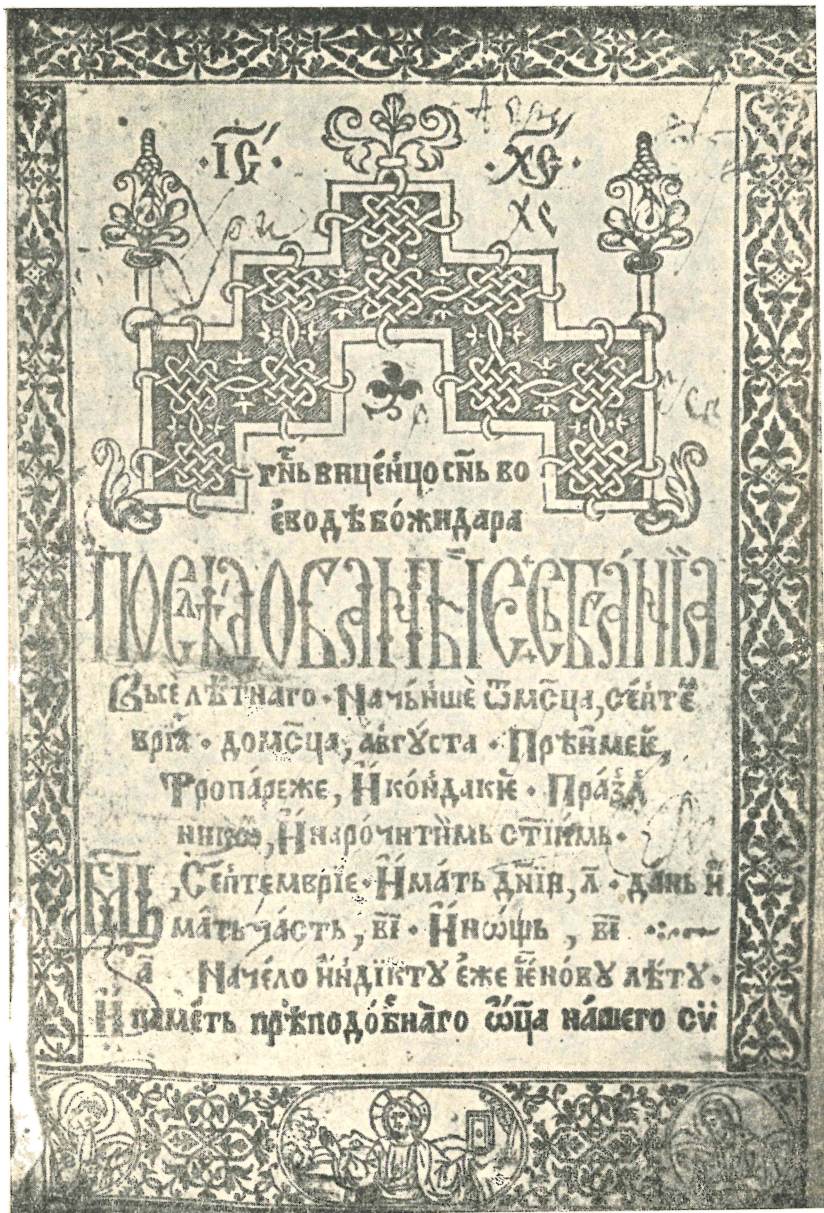 ·І҃С҃· ·Х҃С҃·
хс
гн҃ь вице́нцо сн҃ь во
ево́дѣ бо́жидара
Послѣ́дованыѥ съ́бра́нїа
Высѐ лѣ́тнаго · Начь́ншѐ ѿмс҃ца, се́птѐ
врїа̀ · домс҃ца, а́вгꙋ́ста · Прѣи́меи҆,
Тропа́реже, И҆ ко́ндакиѥ · Пра́зд
никѡ, И҆ наро́читимь ст҃їимь ·
Мц҃ь, Се́птемврїе · И҆́мать дн҃їи, л҃ · да́нь и҆
ма́ть ча́сть, в҃і · И҆ но́щь, в҃і
а҃ Наче́ло и҆́ндїктꙋ е҆́же ѥ҆ но́вꙋ лѣ́тꙋ ·
И҆ паме́ть прѣ́подо́бнаго ѡ҆ц҃а на́шего сѵ̈